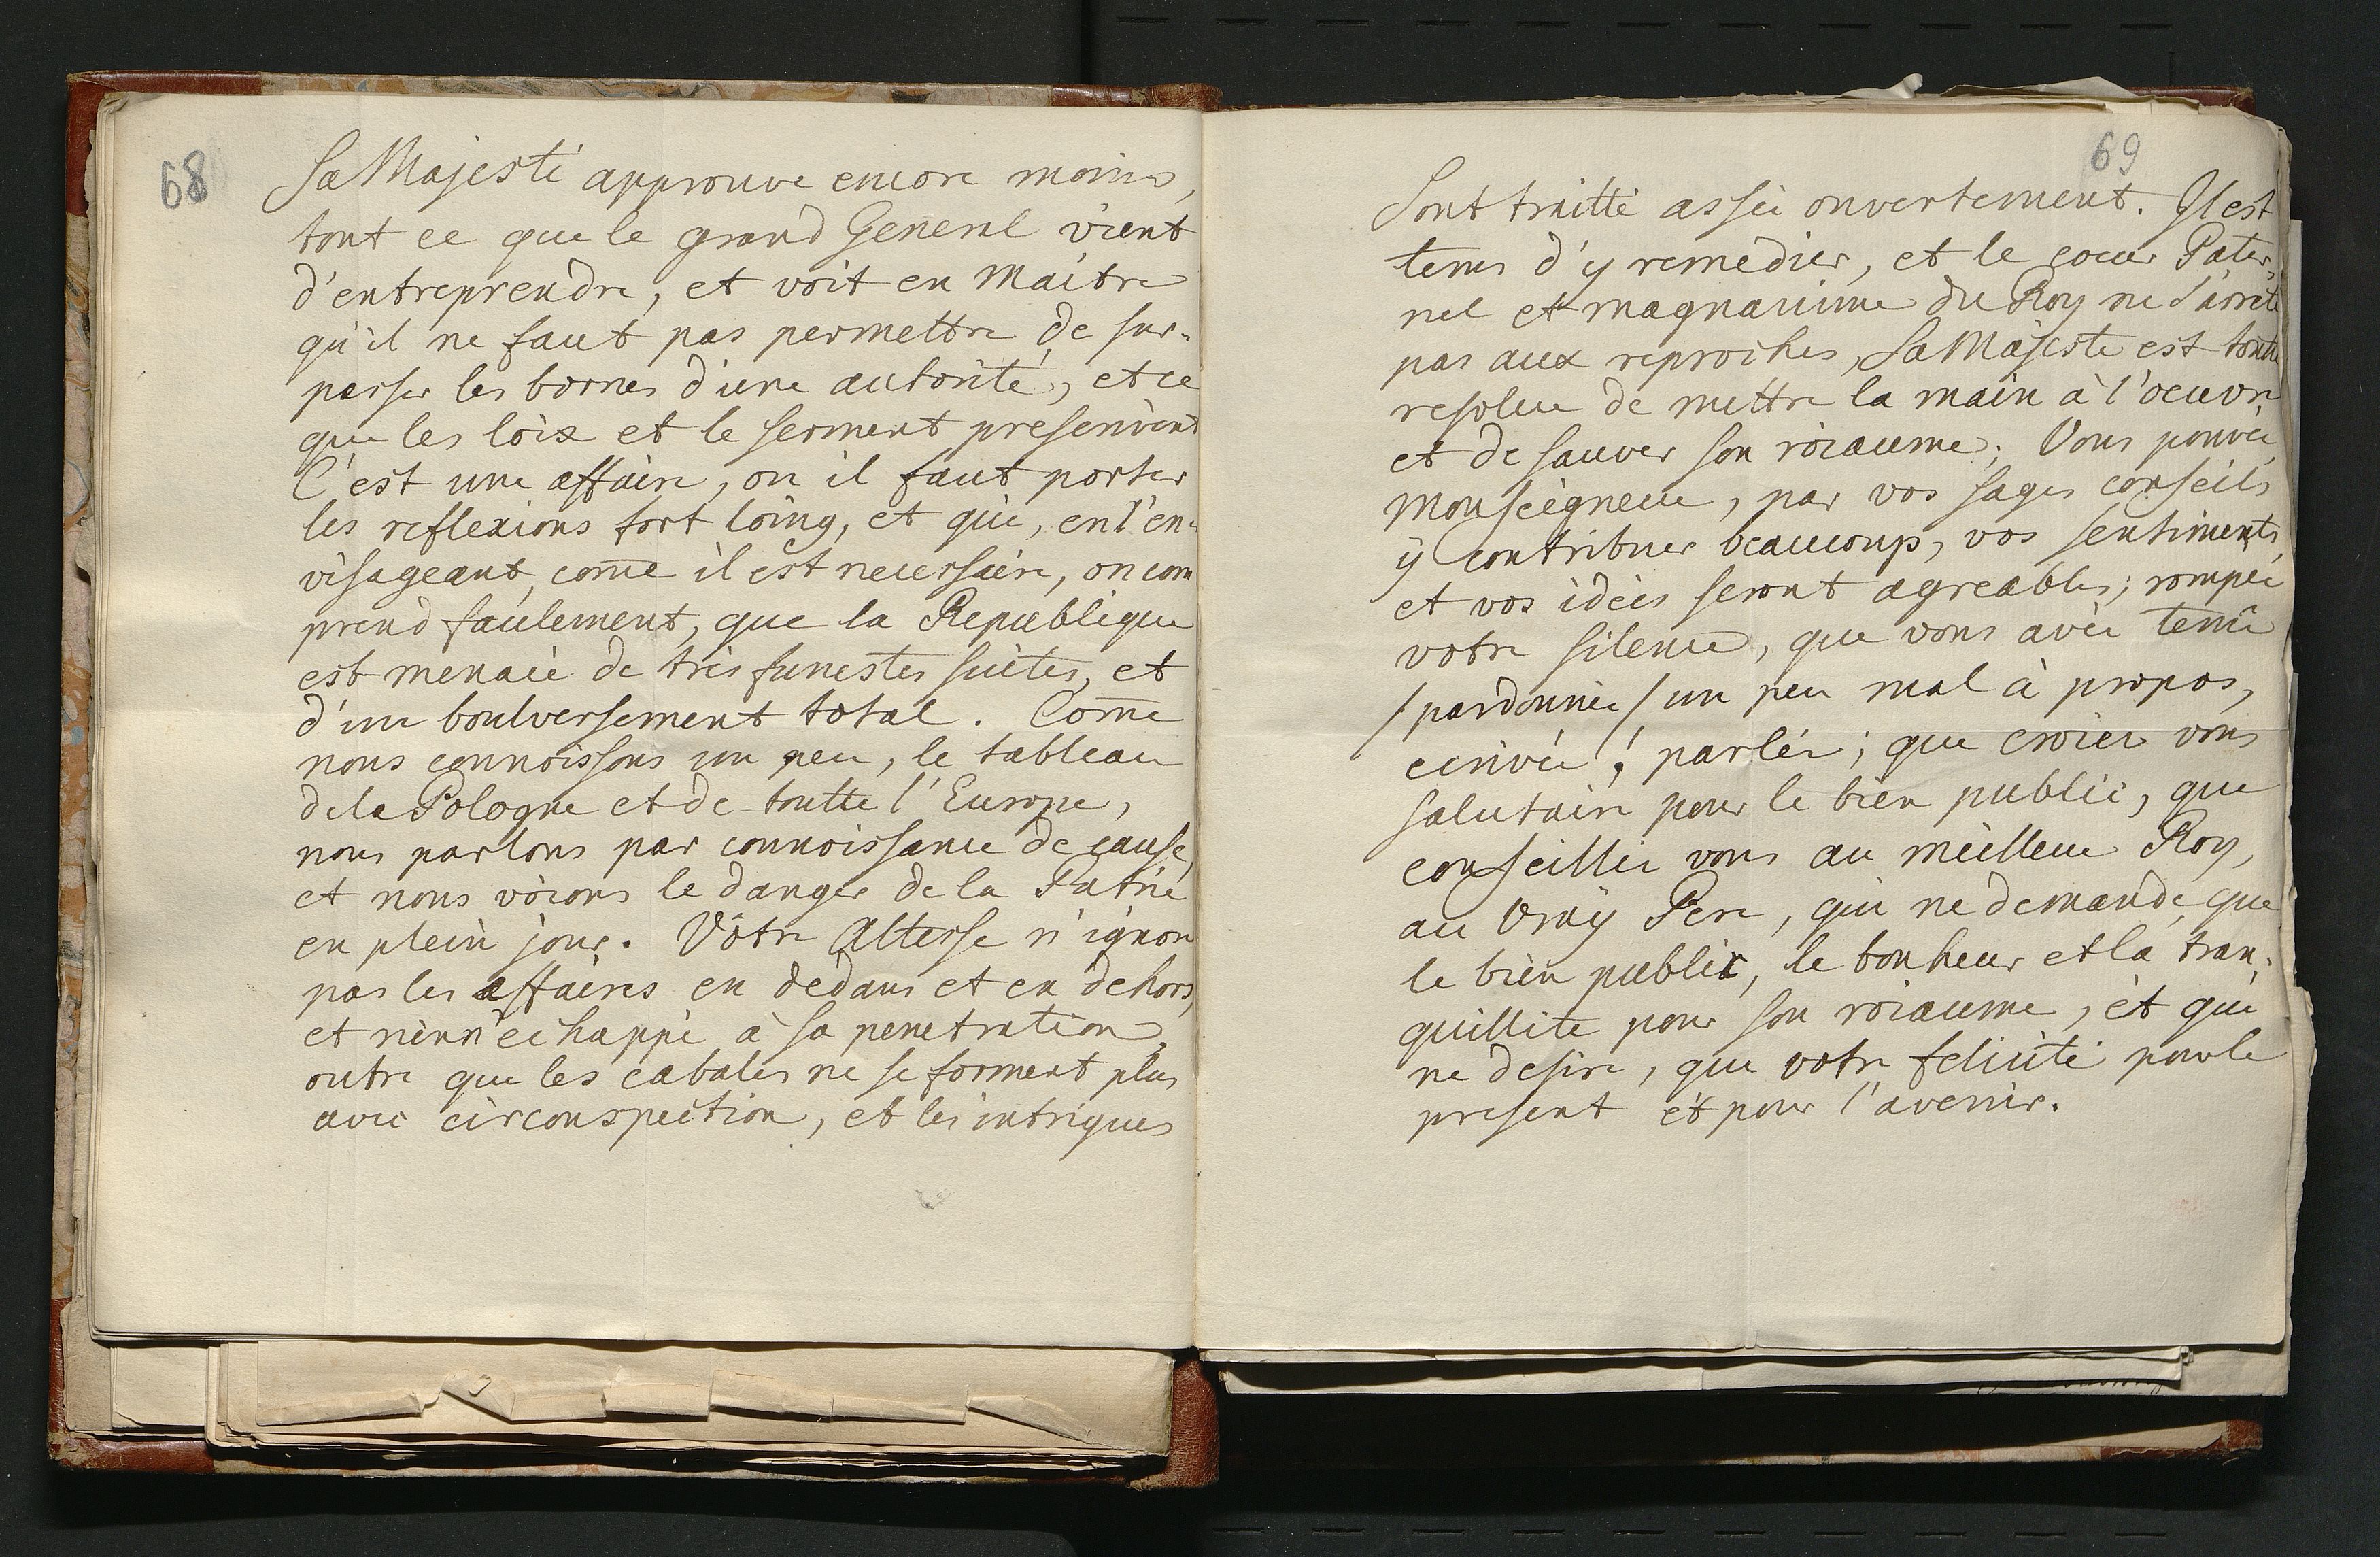 68
Sa Majesté approuve encore moins,
tout ce que le grand General vient
d'entreprendre, et voit en Maitre
qu'il ne faut pas permettre de sur-
passer les bornes d'une autorité, et ce
que les loix et le serment prescrivent
C'est une affaire, ou il faut porter
les reflexions fort loing, et qui, en l'en-
visageant, come il est necessaire, on com
prend facilement, que la Republique
est menacée de très funestes suites, et
d'un boulversement total. Come
nous connoissons un peu, le tableau
de la Pologne et de toutte l'Europe,
nous parlons par connoissance de cause,
et nous voions le danger de la Patrie
en plein jour. Vôtre Altesse n'ignore
pas les affaires en dedans et en dehors,
et rien n'echappe à sa penetration,
outre que les cabales ne se forment plus
avec circonspection, et les intrigues
69
Sont traitté assés ouvertement. Il est
tems d'y remedier, et le coeur Pater-
nel et magnanime du Roy ne s'arrete
pas aux reproches, Sa Majesté est toute
resolue de mettre la main à l'oeuvre
et de sauver son roiaume. Vous pouvés
Monseigneur, par vos sages conseils
y contribuer beaucoup, vos sentiments
et vos idées seront agreables; rompés
votre silence, que vous avés tenû
/pardonnés/ un peu mal à propos,
ecrivés! parlés; que croiés vous
salutaire pour le bien public, que
conseillés vous au meilleur Roy,
au vraÿ Pere, qui ne demande, que
le bien public, le bonheur et la tran-
quillité pour son roiaume, et qui
ne desire, que votre felicité pour le
present et pour l'avenir.